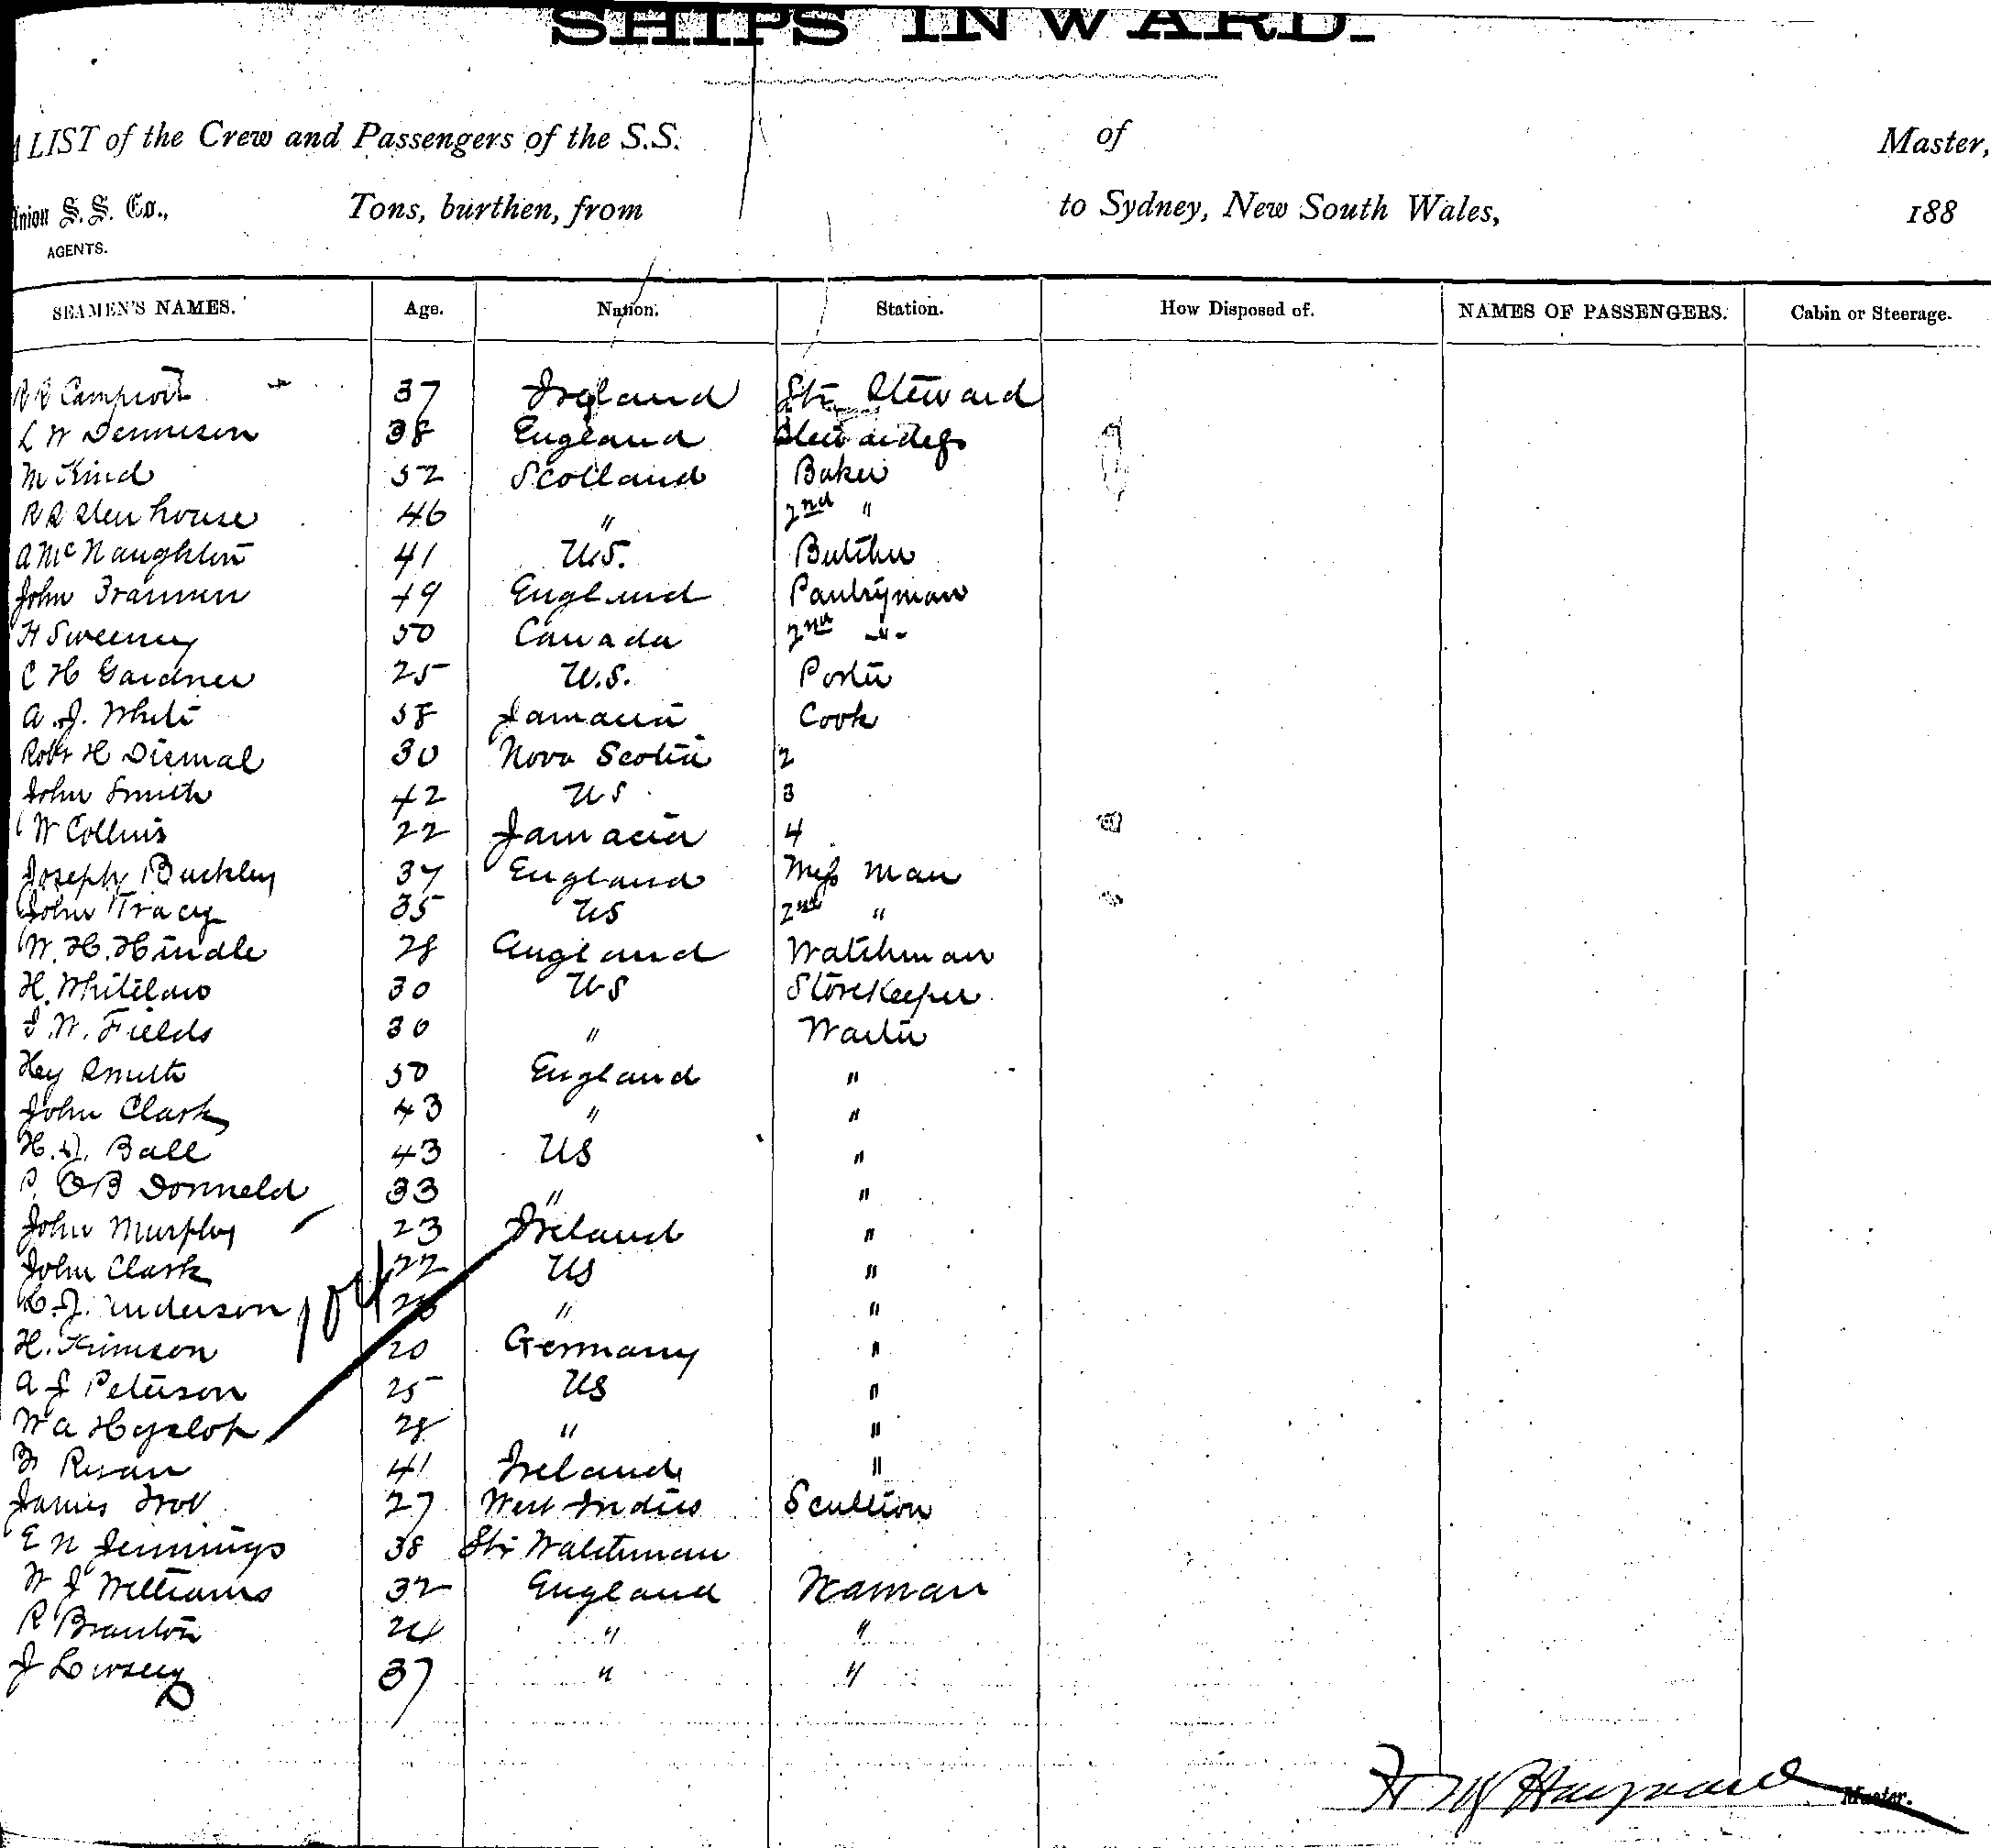 SHIPS INWARD.
A LIST of the Crew and Passengers of the S.S. of Master,
Union S.S. Co., Tons, burthen, from to Sydney, New South Wales, 188
AGENTS.
SEAMEN'S NAMES. Age. Nation. Station. How Disposed of. NAMES OF PASSENGERS. Cabin or Steerage.
37 Ireland Str Steward
L W Dennison 38 England Stewardess
M Kind 52 Scotland Baker
R R Stenhouse 46 " 2nd "
A McNaughton 41 U.S. Butcher
John Brannen 49 England Pantryman
H Sweeney 50 Canada 2nd -"-
C H Gardner 25 U.S. Porter
A. J. White 58 Jamaica Cook
Robt H Dismal 30 Nova Scotia 2
John Smith 42 US 3
W Collins 22 Jamacia 4
Joseph Buckley 37 England Mess Man
John Tracy 35 US 2nd "
W. H. Hindle 28 England Watchman
H. Whitelaw 30 US Storekeeper
J. W. Fields 30 " Waiter
Hy Smith 50 England "
John Clark 43 " "
H. J. Ball 43 US "
P. OB Donneld 33 " "
John Murphy 23 Ireland "
John Clark 22 US "
C. J. Anderson 104 " "
H. Kimson 20 Germany "
A J Peterson 25 US "
W A Hyslop 28 " "
Ryan 41 Ireland "
James 27 West Indies Scullion
E N Jennings 38 Str Watchman
W J Williams 32 England Waman
R Branton 24 " "
J 37 " "
H M Hayward Master.